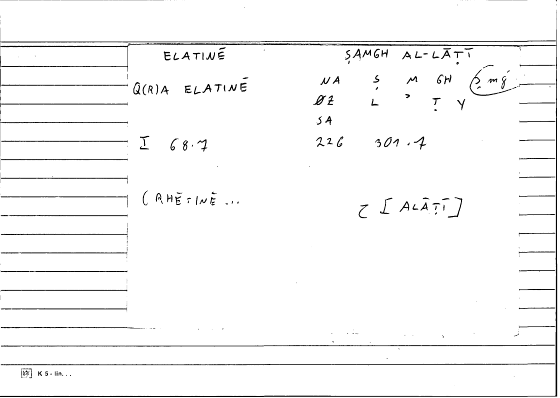 ELATINĒ ṢAMGH AL-LĀṬĪ
Q(R)A ELATINĒ NA Ṣ M GH ṣmġ
ØZ L ʾ Ṭ Y
SA
I 68.7 226 301.1
(RHĒTINĒ ... [ALĀṬĪ]
K 5 - lin...